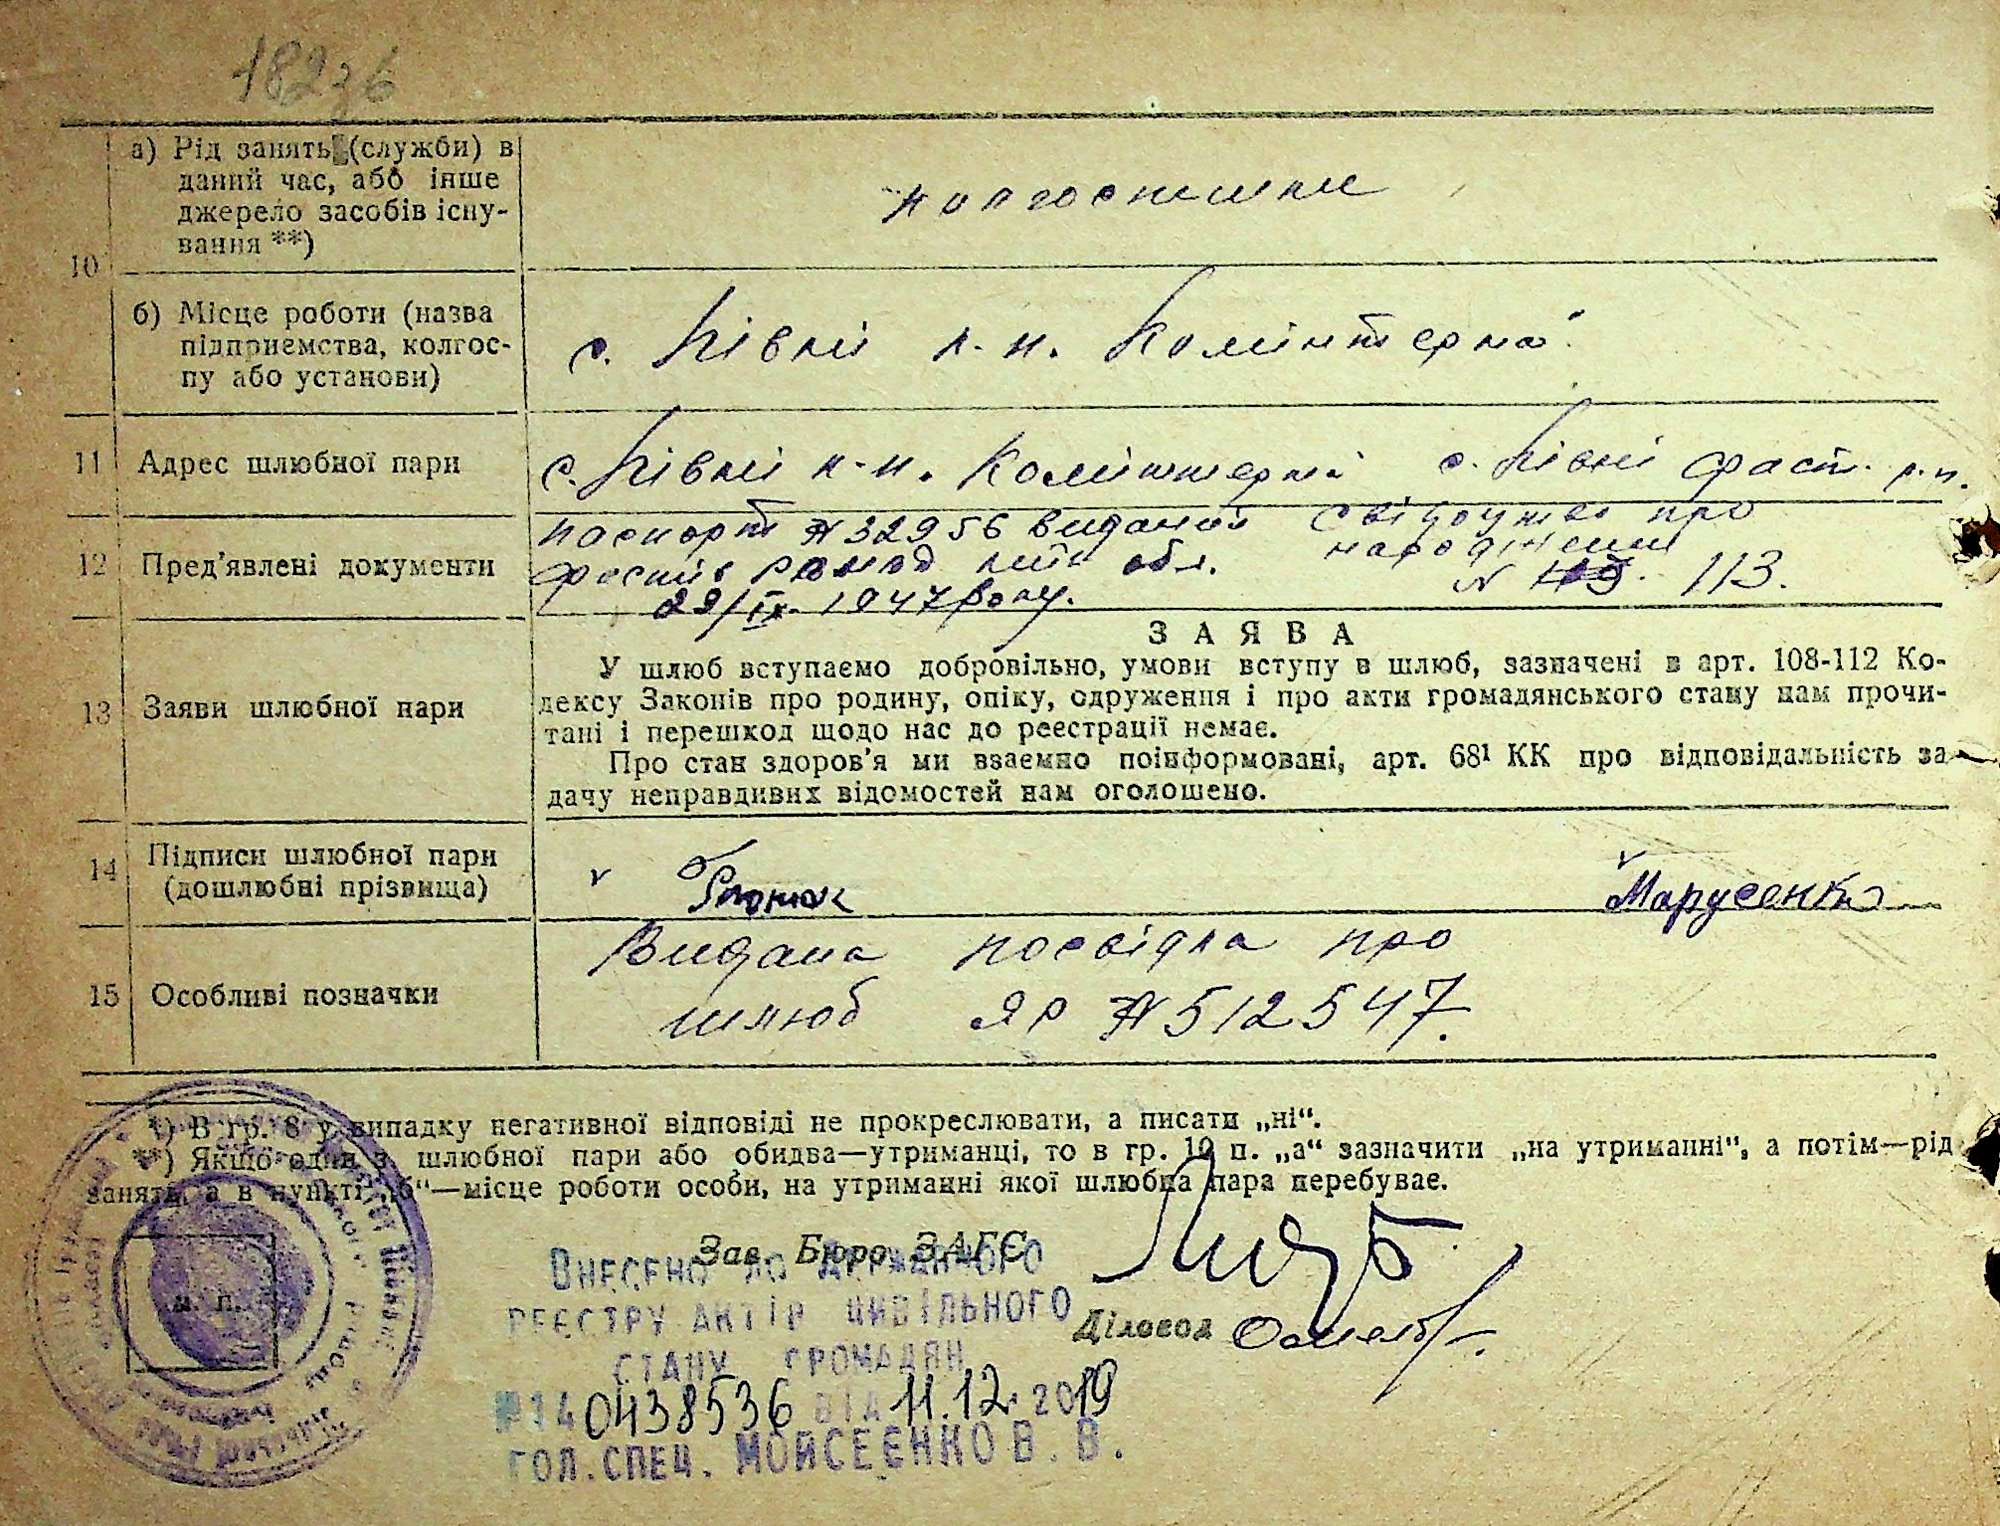 182зв
10
а) Рід занять (служби) в
даний час, або інше
джерело засобів існу-
вання **)
колгоспники
б) Місце роботи (назва
підприємства, колгос-
пу або установи)
с. Півні к-п. Комінтерна
11 Адрес шлюбної пари
с. Півні к-п. Комінтерна с. Півні Фаст. р.н.
12 Пред'явлені документи
паспорт № 32956 виданий
обл.
29/IX. 1947 року.
Свідоцтво про
народження
N 113.
13 Заяви шлюбної пари
ЗАЯВА
У шлюб вступаємо добровільно, умови вступу в шлюб, зазначені в арт. 108-112 Ко-
дексу Законів про родину, опіку, одруження і про акти громадянського стану нам прочи-
тані і перешкод щодо нас до реєстрації немає.
Про стан здоров'я ми взаємно поінформовані, арт. 68¹ КК про відповідальність за
дачу неправдивих відомостей нам оголошено.
14 Підписи шлюбної пари
(дошлюбні прізвища)
Марусенко
15 Особливі позначки
Видана посвідка про
шлюб ЯР № 512547.
*) В гр. 8 у випадку негативної відповіді не прокреслювати, а писати „ні“.
**) Якщо один з шлюбної пари або обидва—утриманці, то в гр. 10 п. „а“ зазначити „на утриманні“, а потім—рід
занять, а в пункті „б“—місце роботи особи, на утриманні якої шлюбна пара перебуває.
Зав. Бюро ЗАГС
Діловод
м. п.
Внесено до Державного
реєстру актів цивільного
стану громадян
№140438536 від 11.12.2019
гол.спец. Мойсеєнко В. В.